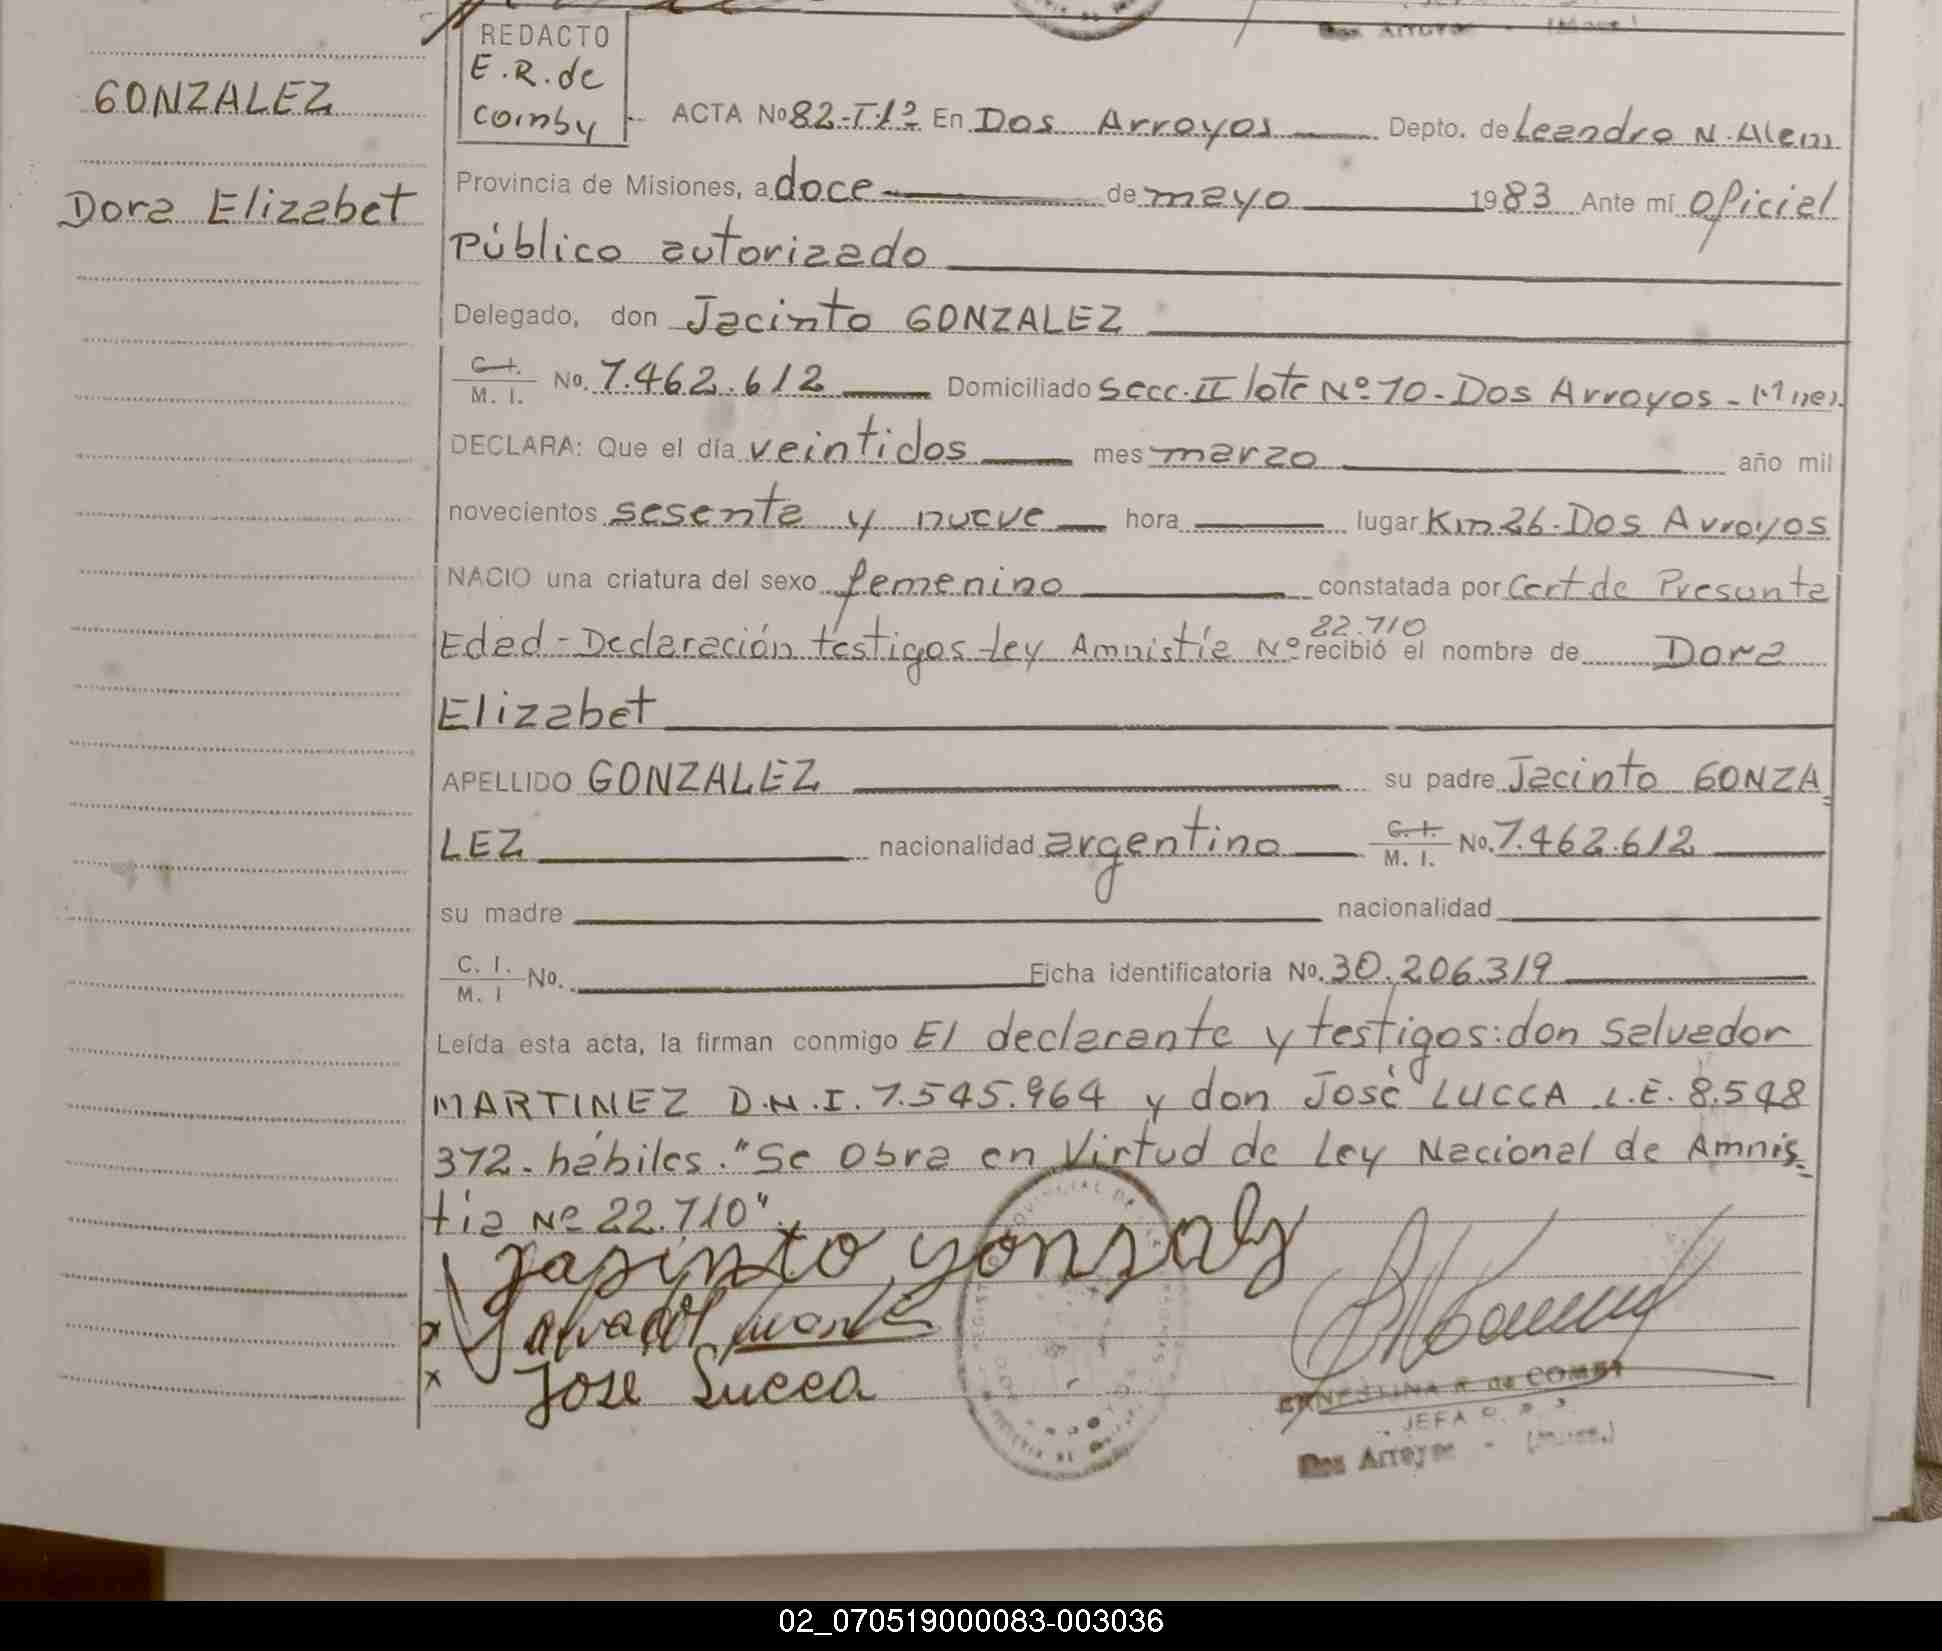 REDACTO
E.R. de
Coinby
GONZALEZ
Dora Elizabet
ACTA No 82-T-1º En Dos Arroyos Depto. de Leandro N. Alem
Provincia de Misiones, a doce de mayo 1983 Ante mí Oficial
Público autorizado
Delegado, don Jacinto GONZALEZ
C. I. M. I. No. 7.462.612 Domiciliado Secc. II lote Nº 10 - Dos Arroyos - (Mnes).
DECLARA: Que el día veintidos mes marzo año mil
novecientos sesenta y nueve hora lugar Km 26 - Dos Arroyos
NACIO una criatura del sexo femenino constatada por Cert de Presunta
Edad - Declaración testigos - Ley Amnistía Nº 22.710 recibió el nombre de Dora
Elizabet
APELLIDO GONZALEZ su padre Jacinto GONZA
LEZ nacionalidad argentino C. I. M. I. No. 7.462.612
su madre nacionalidad
C. I. M. I No. Ficha identificatoria No. 30.206.319
Leída esta acta, la firman conmigo El declarante y testigos: don Salvador
MARTINEZ D.N.I. 7.545.964 y don José LUCCA L.E. 8.548
372 - hábiles. "Se Obra en Virtud de Ley Nacional de Amnis
tia Nº 22.710"
Jasinto gonsalz
x Salvador
x Jose Lucca
ERNESTINA R. de COMBY
JEFA
Dos Arroyos - (Mnes.)
02_070519000083-003036